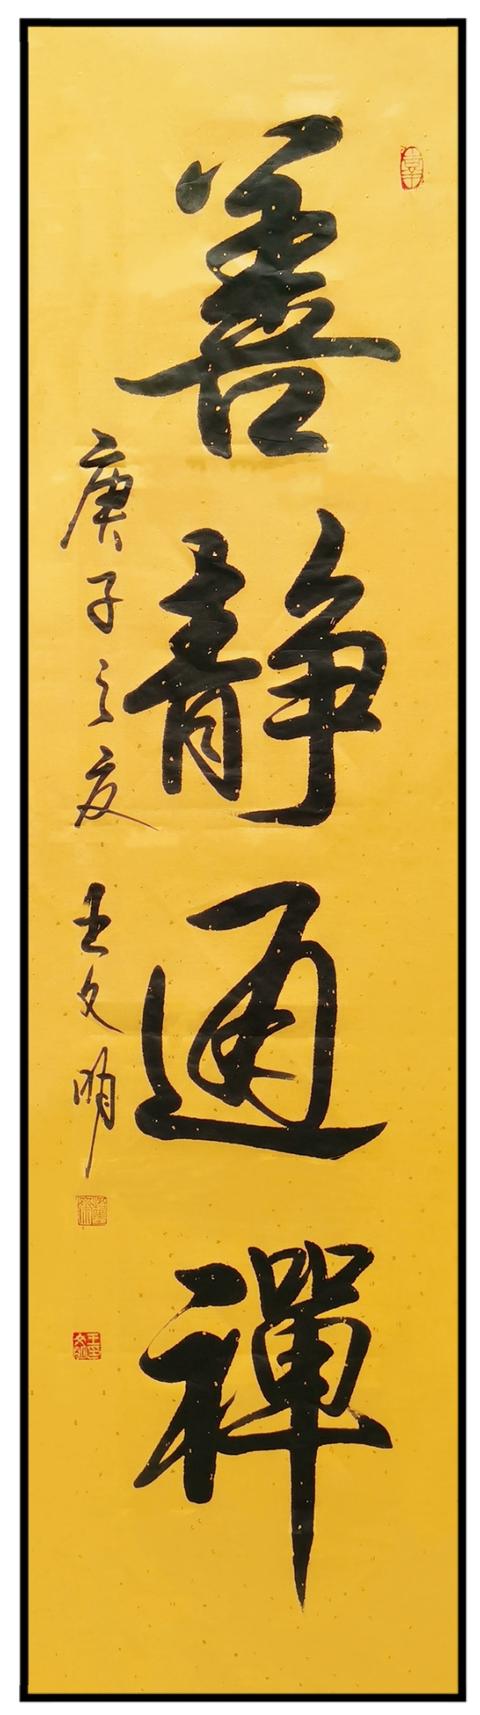 善静通禪
庚子之夏 王文明